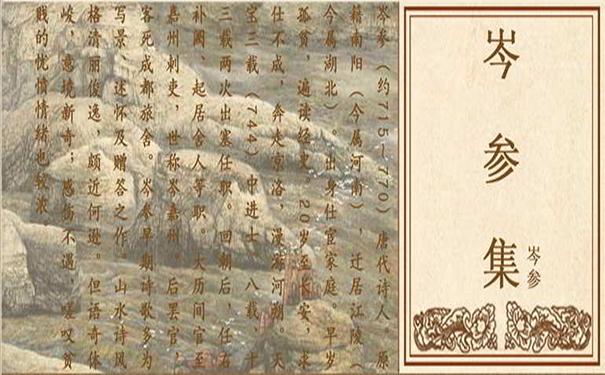 岑参集
岑参
岑参（约715—770）唐代诗人 原
籍南阳（今属河南），迁居江陵（
今属湖北）。出身仕宦家庭。早岁
孤贫，遍读经史。20岁至长安，求
仕不成，奔走京洛，漫游河朔。天
宝三载（744）中进士。八载、十
三载两次出塞任职。回朝后，任右
补阙、起居舍人等职。大历间官至
嘉州刺史，世称岑嘉州。后罢官，
客死成都旅舍。岑参早期诗歌多为
写景、述怀及赠答之作。山水诗风
格清丽俊逸，颇近何逊。但语奇体
峻，意境新奇；感伤不遇、嗟叹贫
贱的忧愤情绪也较浓